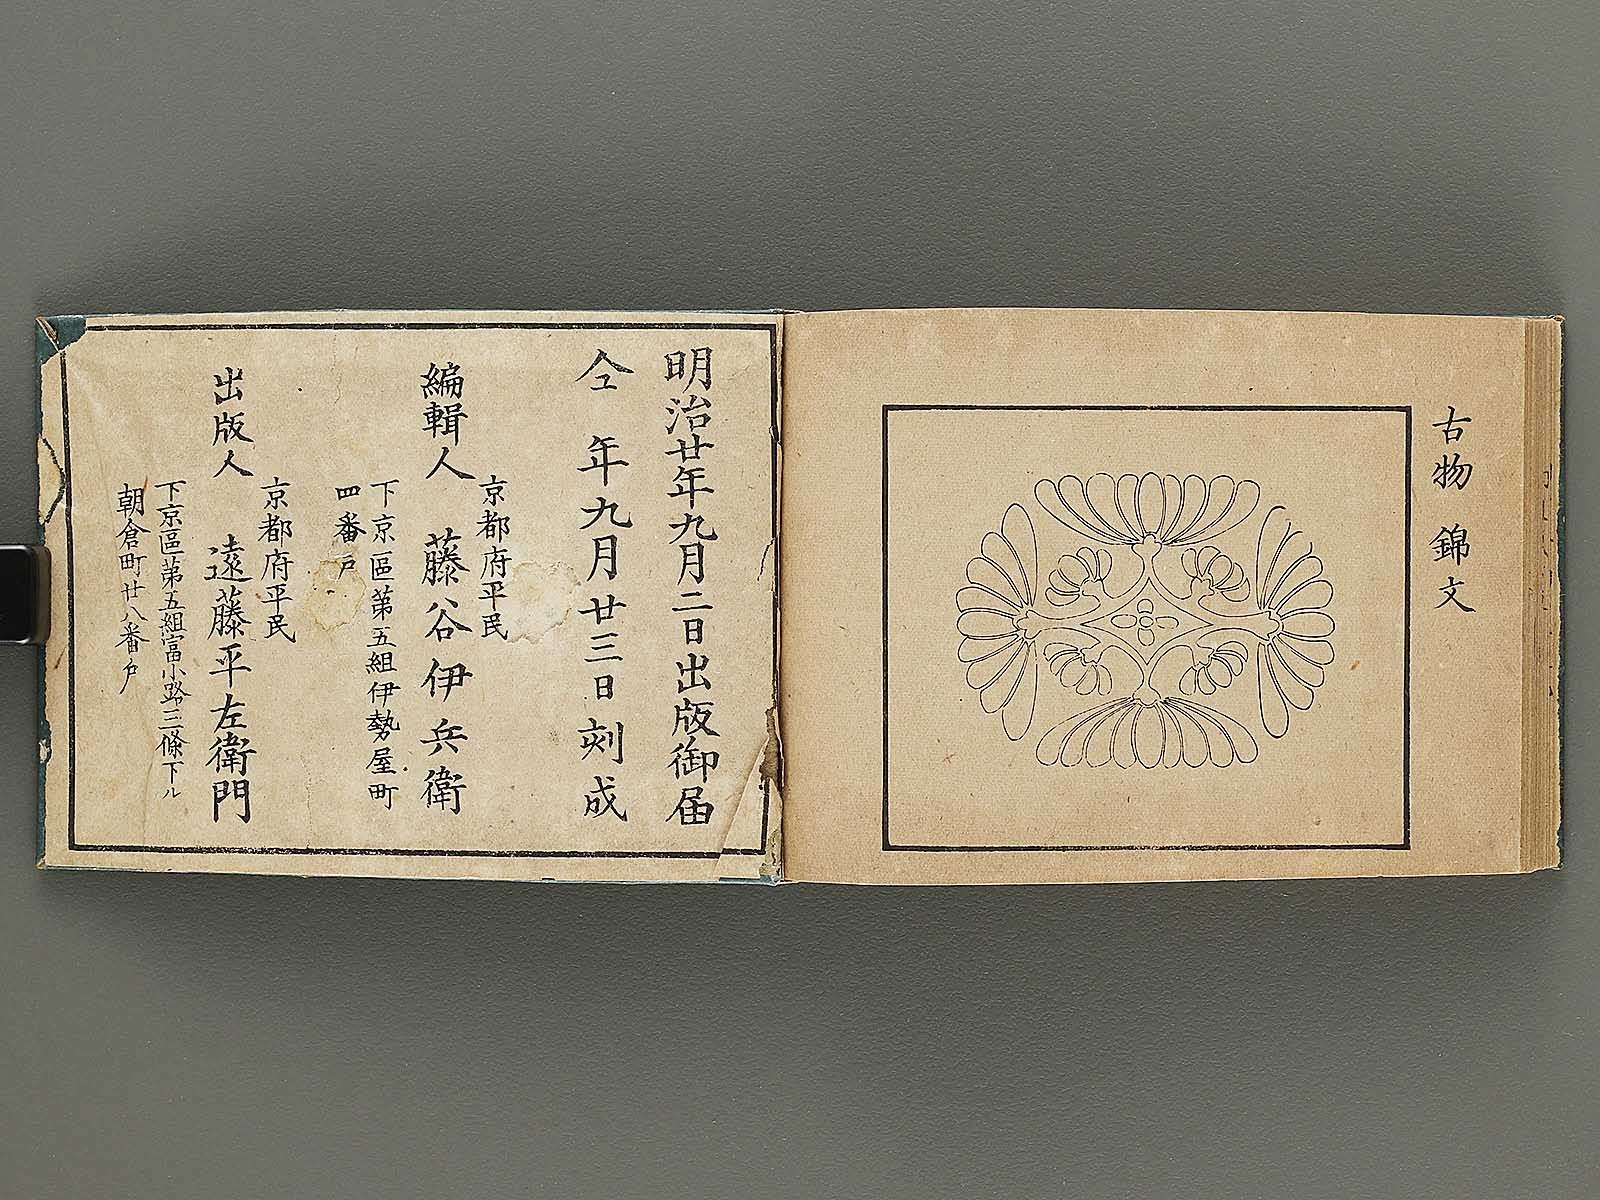 古物 錦文
明治廿年九月二日出版御届
仝 年九月廿三日刻成
京都府平民
編輯人 藤谷伊兵衛
下京區第五組伊勢屋町
四番戸
京都府平民
出版人 遠藤平左衛門
下京區第五組富小路三條下ル
朝倉町廿八番戸